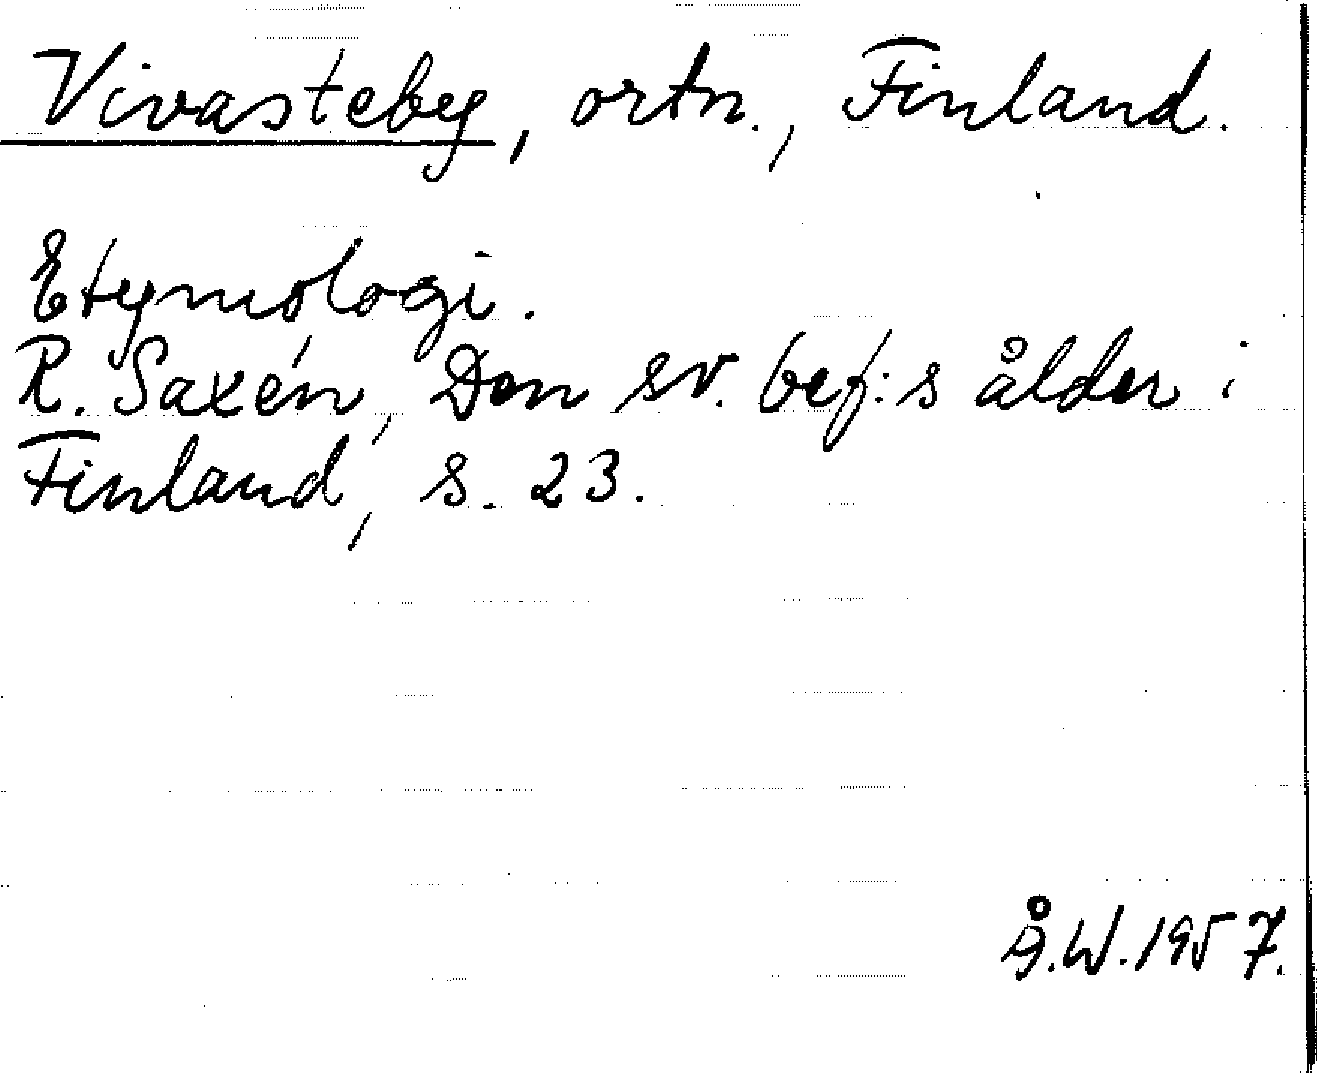 Vivasteby, ortn., Finland.
Etymologi.
R. Saxén, Den sv. bef:s ålder i
Finland, s. 23.
Å.W.1957.